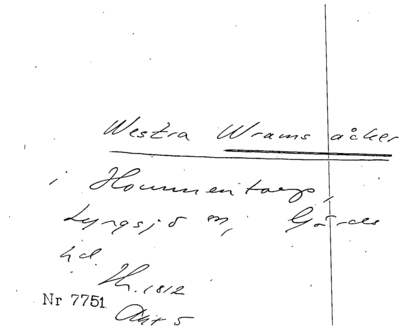 Westra Wrams åcker
i Hommentorp,
Lyngsjö m, Gärds
hd
Nr 7751